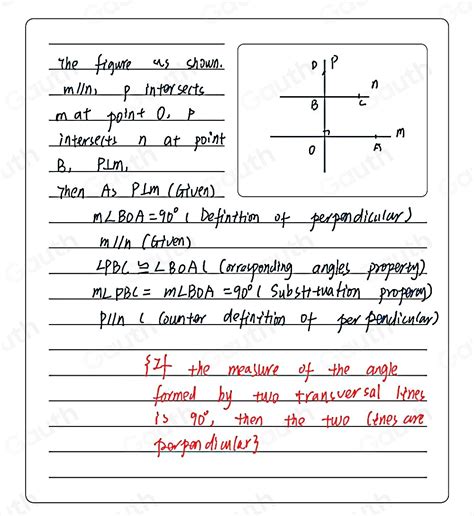 The figure us shown.
m//n, p intersects
m at point O, P
intersects n at point
B, P⊥m,
Then As P⊥m (Given)
m∠BOA=90° ( Definition of perpendicular)
m//n (Given)
∠PBC ≅ ∠BOA ( Corresponding angles property)
m∠PBC = m∠BOA =90° ( Substitution property)
P//n ( Counter definition of perpendicular)
{If the measure of the angle
formed by two transversal lines
is 90°, then the two lines are
perpendicular}
D P
n
B C
m
O A
Gauth